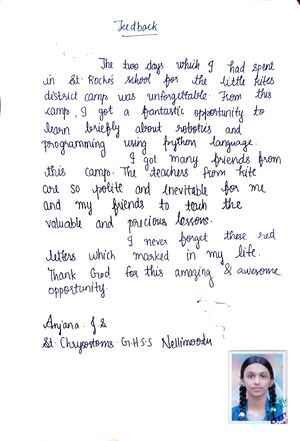 Feedback
The two days which I had spent
in St. Roche's school for the little kites
district camp was unforgettable. From this
camp, I got a fantastic opportunity to
learn briefly about robotics and
programming using python language.
I got many friends from
this camp. The teachers from kite
are so polite and inevitable for me
and my friends to teach the
valuable and precious lessons.
I never forget these red
letters which marked in my life.
Thank God for this amazing & awesome
opportunity.
Anjana. J S
St. Chrysostoms G.H.S.S Nellimoodu